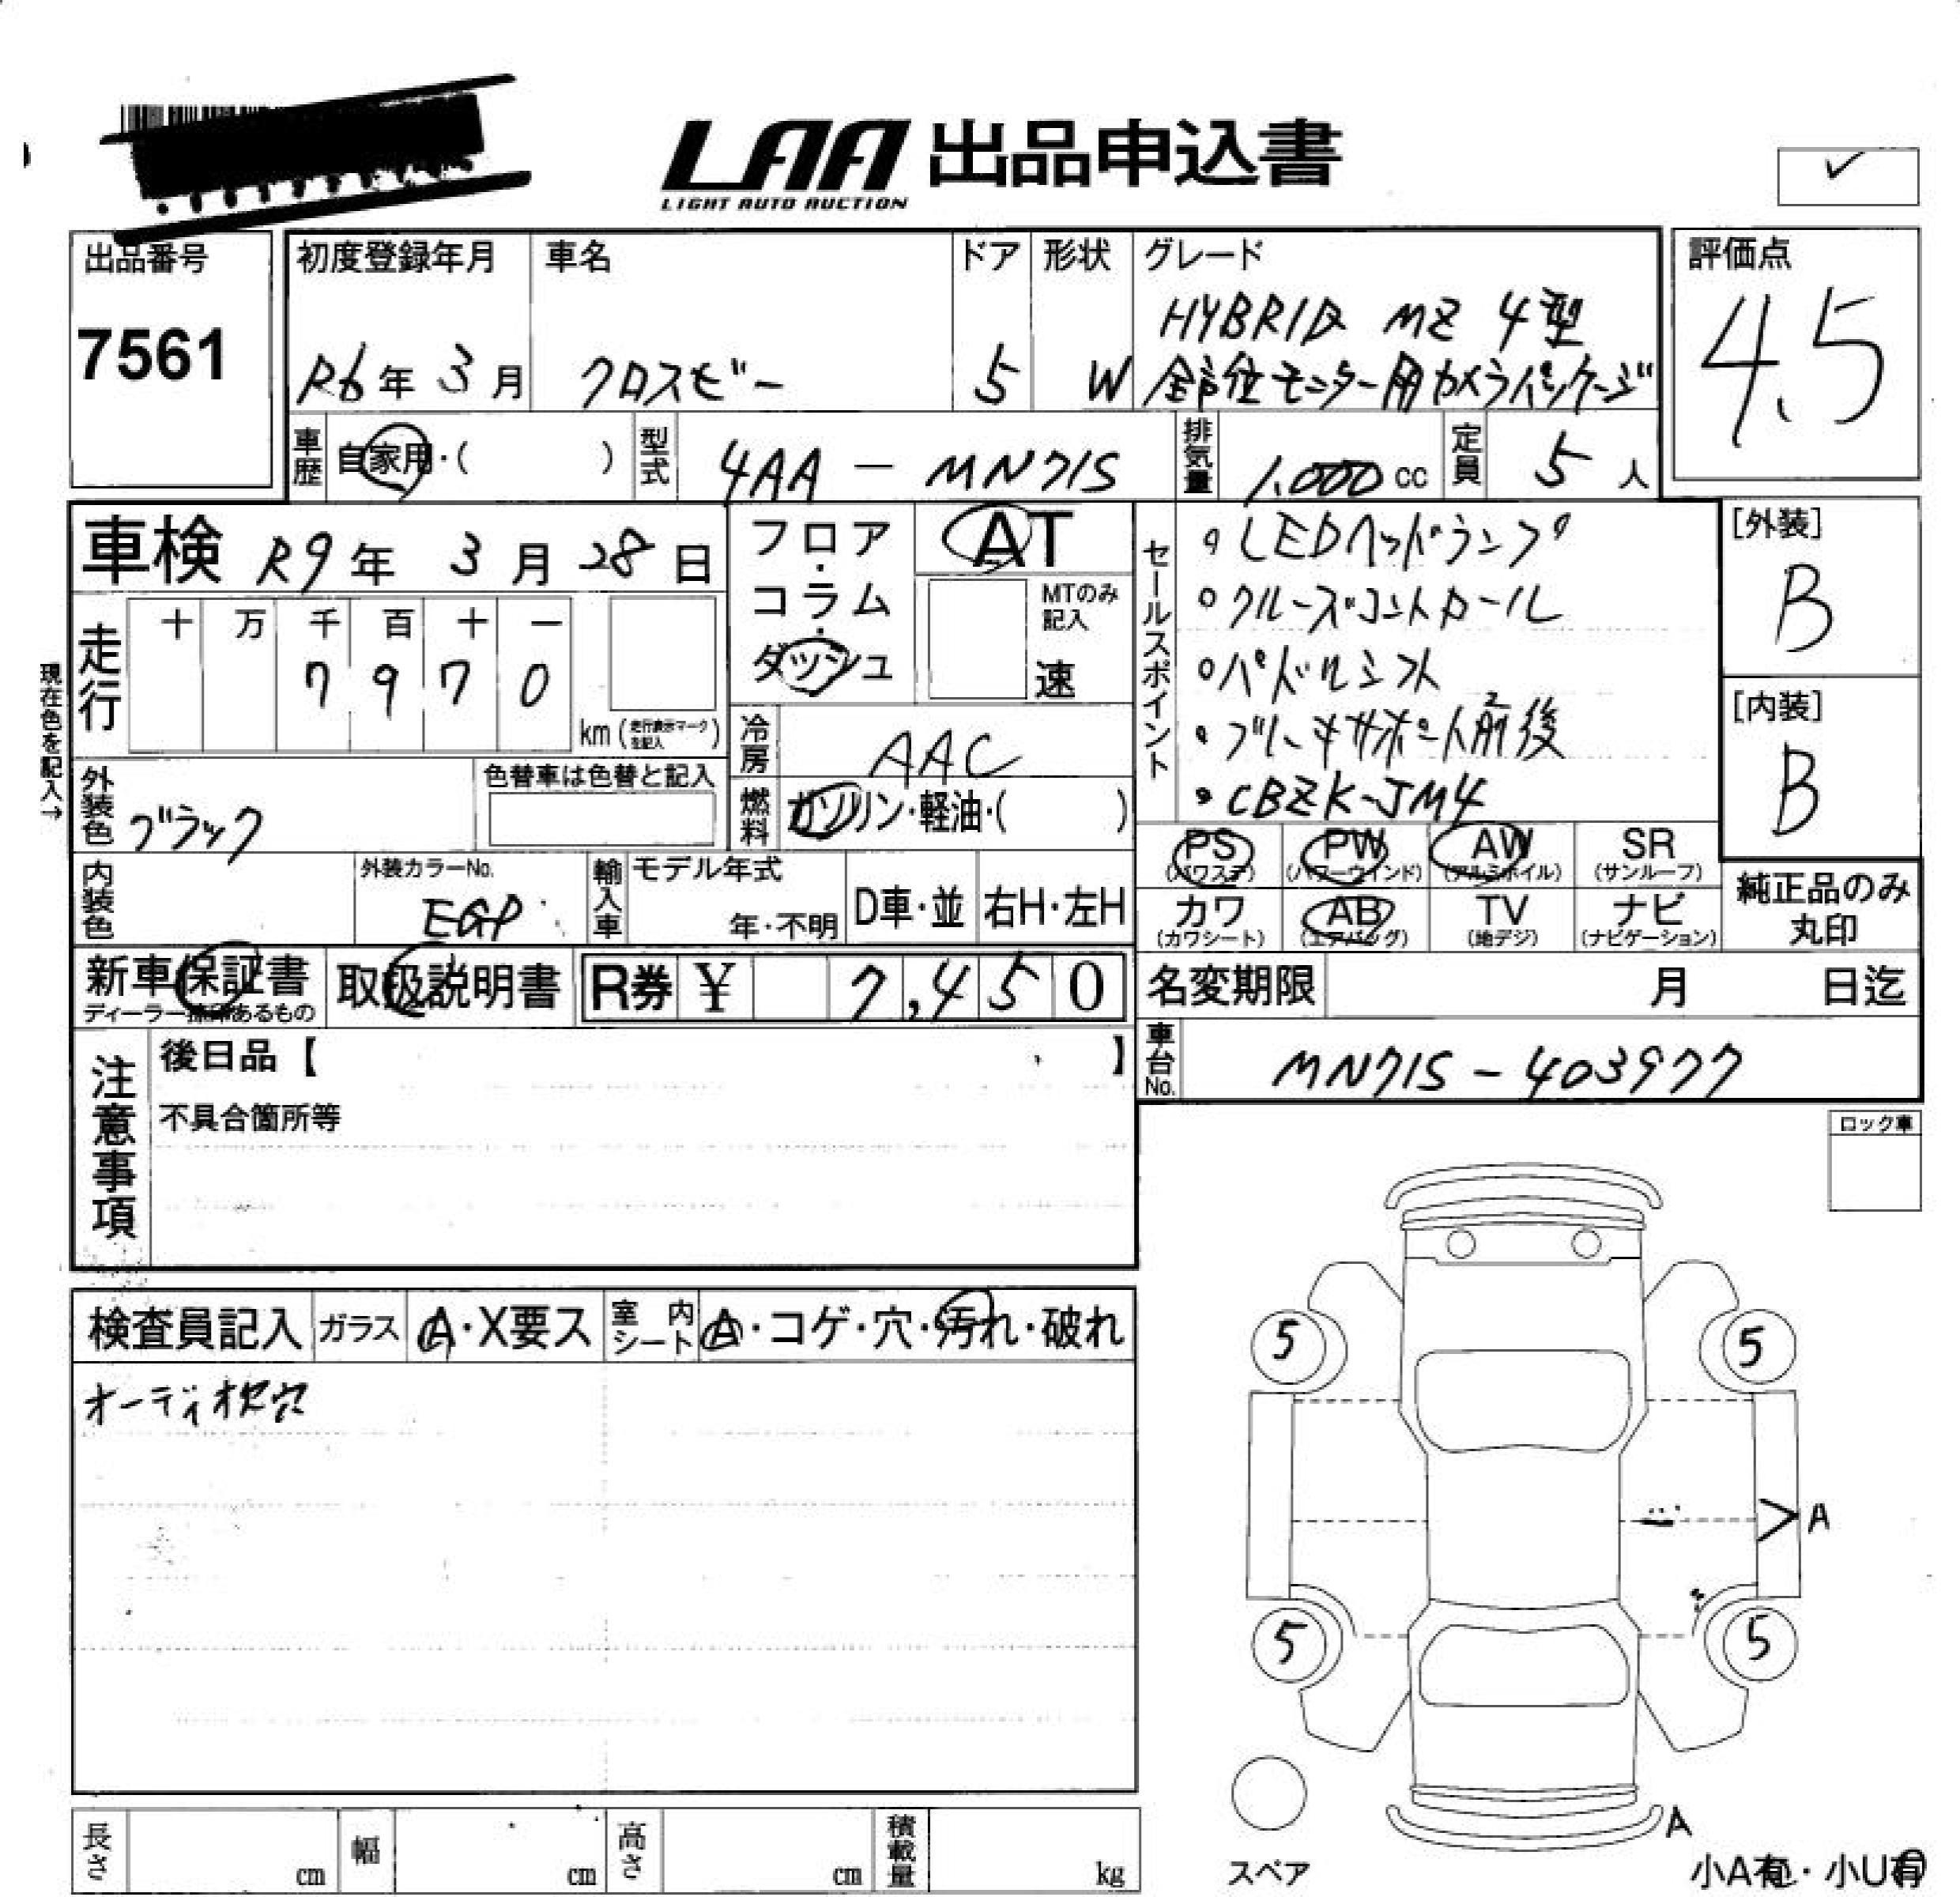 LAA 出品申込書
LIGHT AUTO AUCTION
出品番号
7561
初度登録年月
R6年 3月
車名
クロスビー
ドア
5
形状
W
グレード
HYBRID MZ 4型
全方位モニター用カメラパッケージ
評価点
4.5
車歴 自家用・( )
型式 4AA - MN71S
排気量 1.000 cc
定員 5 人
車検 R9年 3月 28日
現在色を記入→
走行 十 万 千 百 十 一
7 9 7 0
km (走行表示マークを記入)
フロア・コラム・ダッシュ
AT
MTのみ記入
速
冷房 AAC
燃料 ガソリン・軽油・( )
外装色 ブラック
色替車は色替と記入
内装色
外装カラーNo.
EGP
輸入車
モデル年式
年・不明
D車・並 右H・左H
セールスポイント
・LEDヘッドランプ
・クルーズコントロール
・パドルシフト
・ブレーキサポート前後
・CBZK-JM4
[外装]
B
[内装]
B
PS (パワステ)
PW (パワーウインド)
AW (アルミホイル)
SR (サンルーフ)
カワ (カワシート)
AB (エアバッグ)
TV (地デジ)
ナビ (ナビゲーション)
純正品のみ
丸印
新車保証書
ディーラー捺印あるもの
取扱説明書
R券 ¥ 7,450
名変期限 月 日迄
車台No. MN71S-403977
注意事項
後日品【 】
不具合箇所等
ロック車
検査員記入 ガラス A・X要ス 室内シート A・コゲ・穴・汚れ・破れ
オーディオ枕穴
5 5
A
5 5
A
スペア
小A有・小U有
長さ cm 幅 cm 高さ cm 積載量 kg